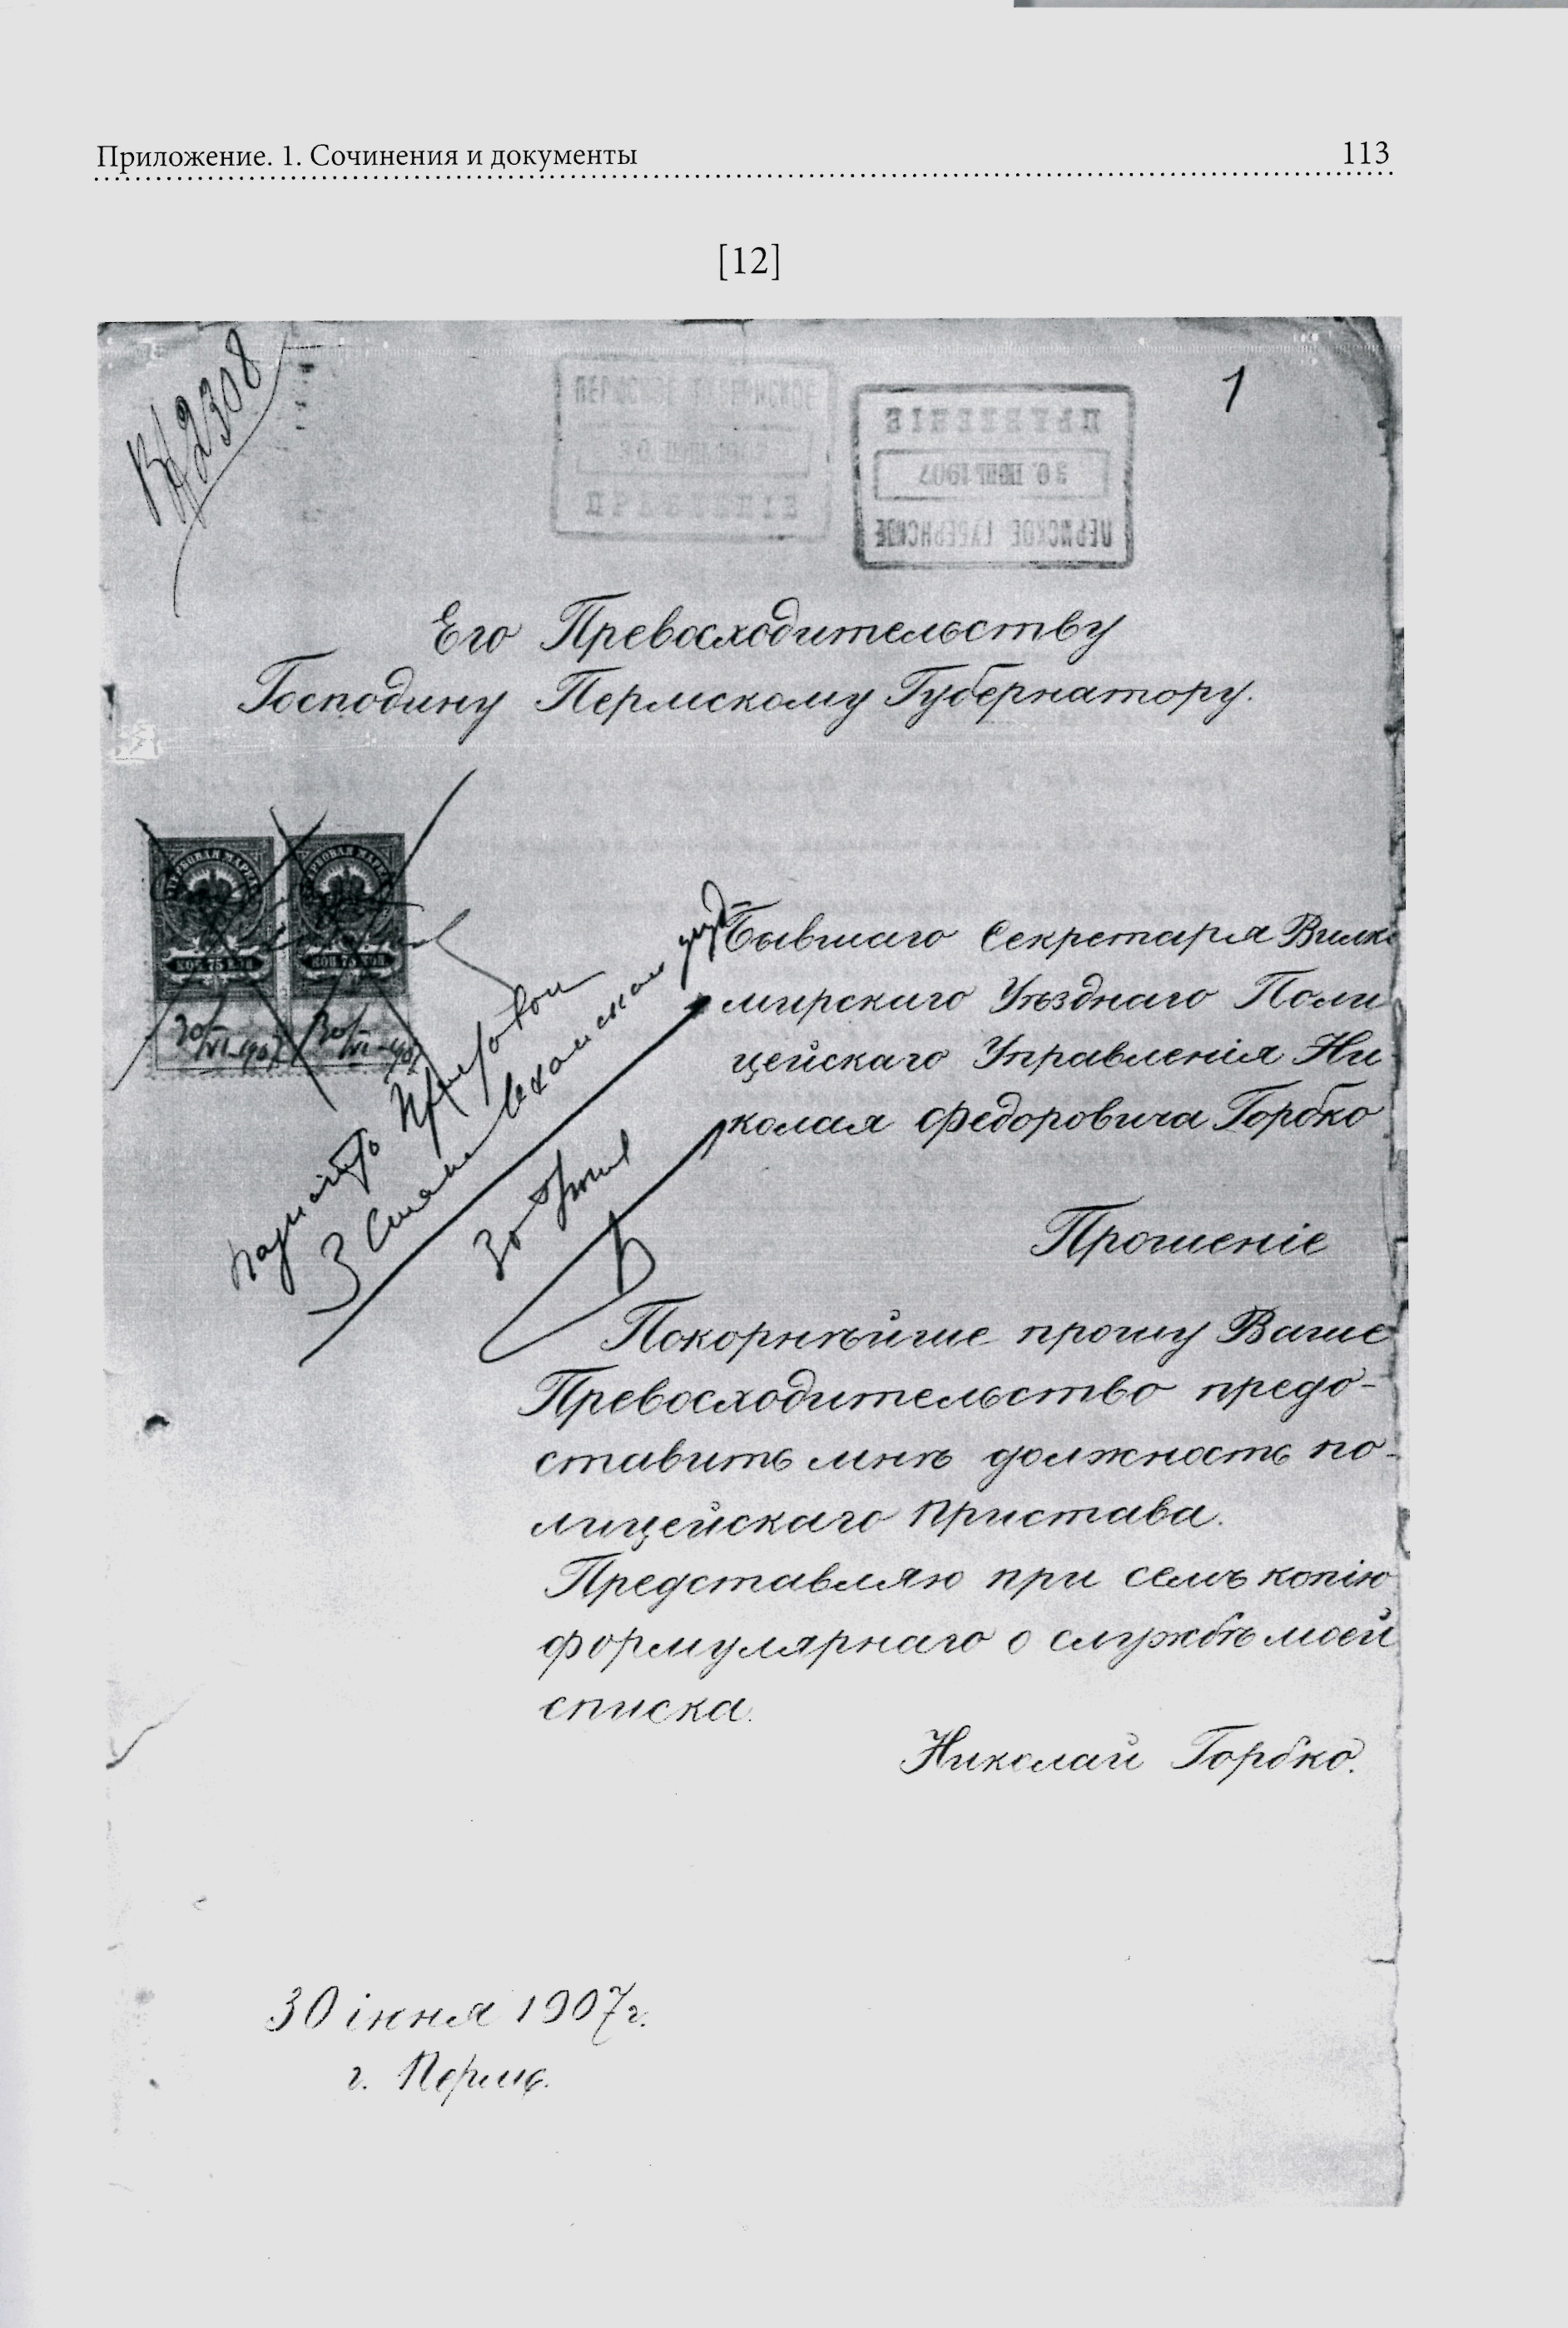 Приложение. 1. Сочинения и документы 113
[12]
В/2308
1
ПЕРМСКОЕ ГУБЕРНСКОЕ
ПРАВЛЕНІЕ
ПЕРМСКОЕ ГУБЕРНСКОЕ
30 ІЮН 1907
ПРАВЛЕНІЕ
Его Превосходительству
Господину Пермскому Губернатору.
ГЕРБОВАЯ МАРКА ГЕРБОВАЯ МАРКА
КОП 75 КОП КОП 75 КОП
30/VI-907 30/VI-907
Бывшаго Секретаря Вилко
мирскаго Уѣзднаго Поли
цейскаго Управленія Ни
колая Федоровича Горбко
3 стана
30 Іюня
Прошеніе
Покорнѣйше прошу Ваше
Превосходительство предо-
ставить мнѣ должность по-
лицейскаго Пристава.
Представляю при семъ копію
формулярнаго о службѣ моей
списка.
Николай Горбко.
30 іюня 1907 г.
г. Пермь.